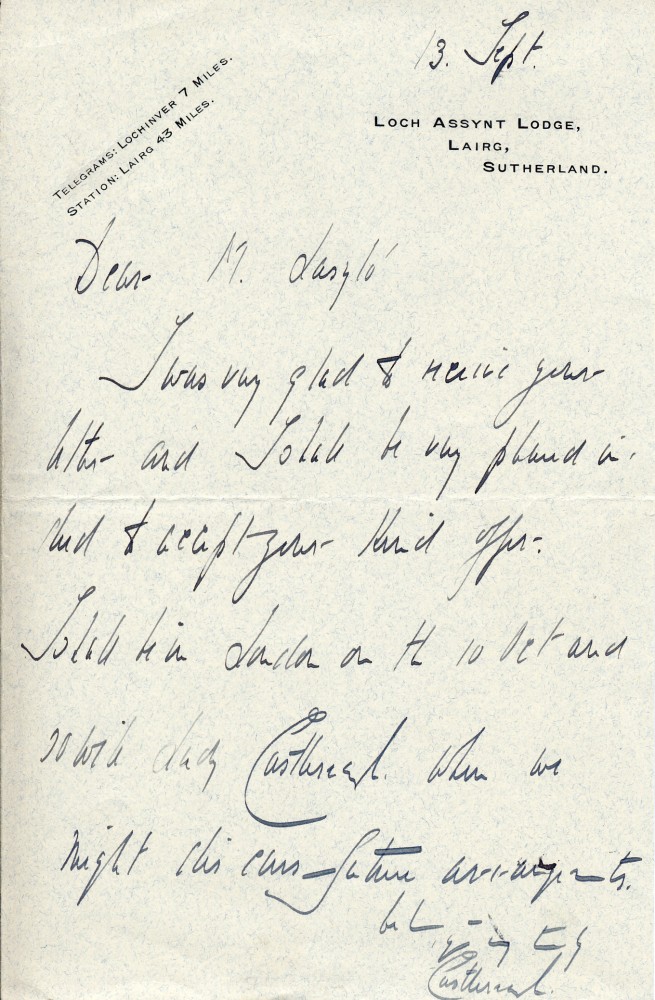 13. Sept.
TELEGRAMS: LOCHINVER 7 MILES.
STATION: LAIRG 43 MILES.
LOCH ASSYNT LODGE,
LAIRG,
SUTHERLAND.
Dear M. Laszló
I was very glad to receive your
letter and I shall be very pleased in-
deed to accept your kind offer.
I shall be in London on the 10 Oct and
so will Lady Castlereagh. when we
might discuss future arrangements.
Castlereagh.